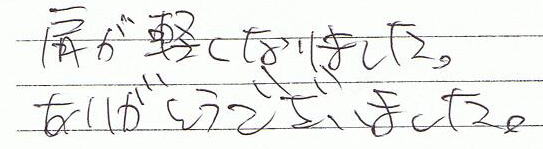 肩が軽くなりました。
ありがとうございました。